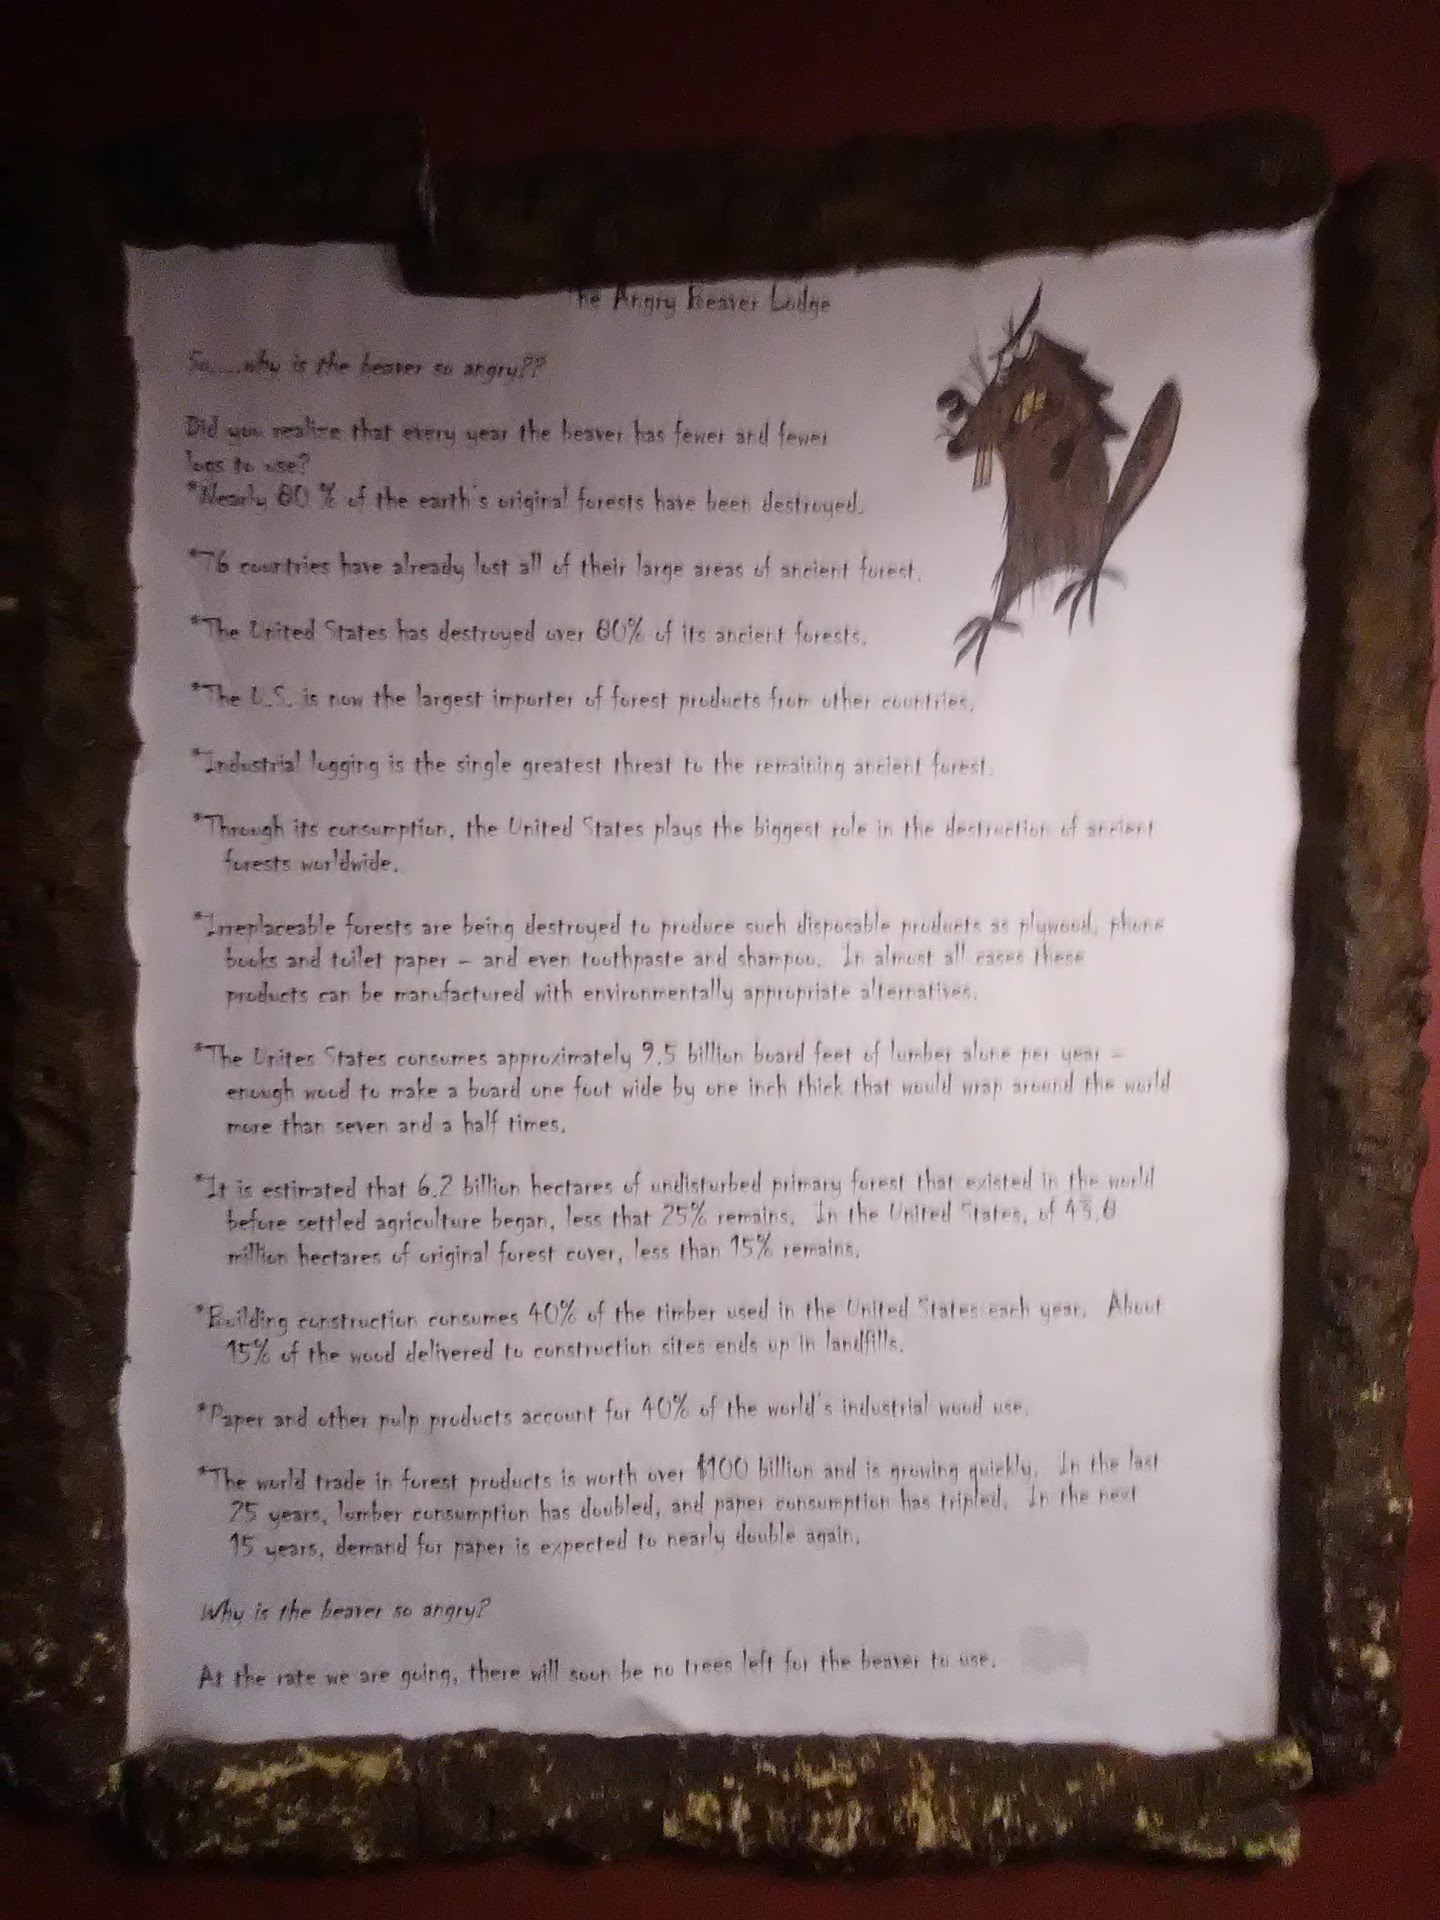 The Angry Beaver Lodge
So.....why is the beaver so angry??
Did you realize that every year the beaver has fewer and fewer
logs to use?
*Nearly 80 % of the earth's original forests have been destroyed.
*76 countries have already lost all of their large areas of ancient forest.
*The United States has destroyed over 80% of its ancient forests.
*The U.S. is now the largest importer of forest products from other countries.
*Industrial logging is the single greatest threat to the remaining ancient forest.
*Through its consumption, the United States plays the biggest role in the destruction of ancient
forests worldwide.
*Irreplaceable forests are being destroyed to produce such disposable products as plywood, phone
books and toilet paper – and even toothpaste and shampoo. In almost all cases these
products can be manufactured with environmentally appropriate alternatives.
*The Unites States consumes approximately 9.5 billion board feet of lumber alone per year –
enough wood to make a board one foot wide by one inch thick that would wrap around the world
more than seven and a half times.
*It is estimated that 6.2 billion hectares of undisturbed primary forest that existed in the world
before settled agriculture began, less that 25% remains. In the United States, of 43.8
million hectares of original forest cover, less than 15% remains.
*Building construction consumes 40% of the timber used in the United States each year. About
15% of the wood delivered to construction sites ends up in landfills.
*Paper and other pulp products account for 40% of the world's industrial wood use.
*The world trade in forest products is worth over $100 billion and is growing quickly. In the last
25 years, lumber consumption has doubled, and paper consumption has tripled. In the next
15 years, demand for paper is expected to nearly double again.
Why is the beaver so angry?
At the rate we are going, there will soon be no trees left for the beaver to use.